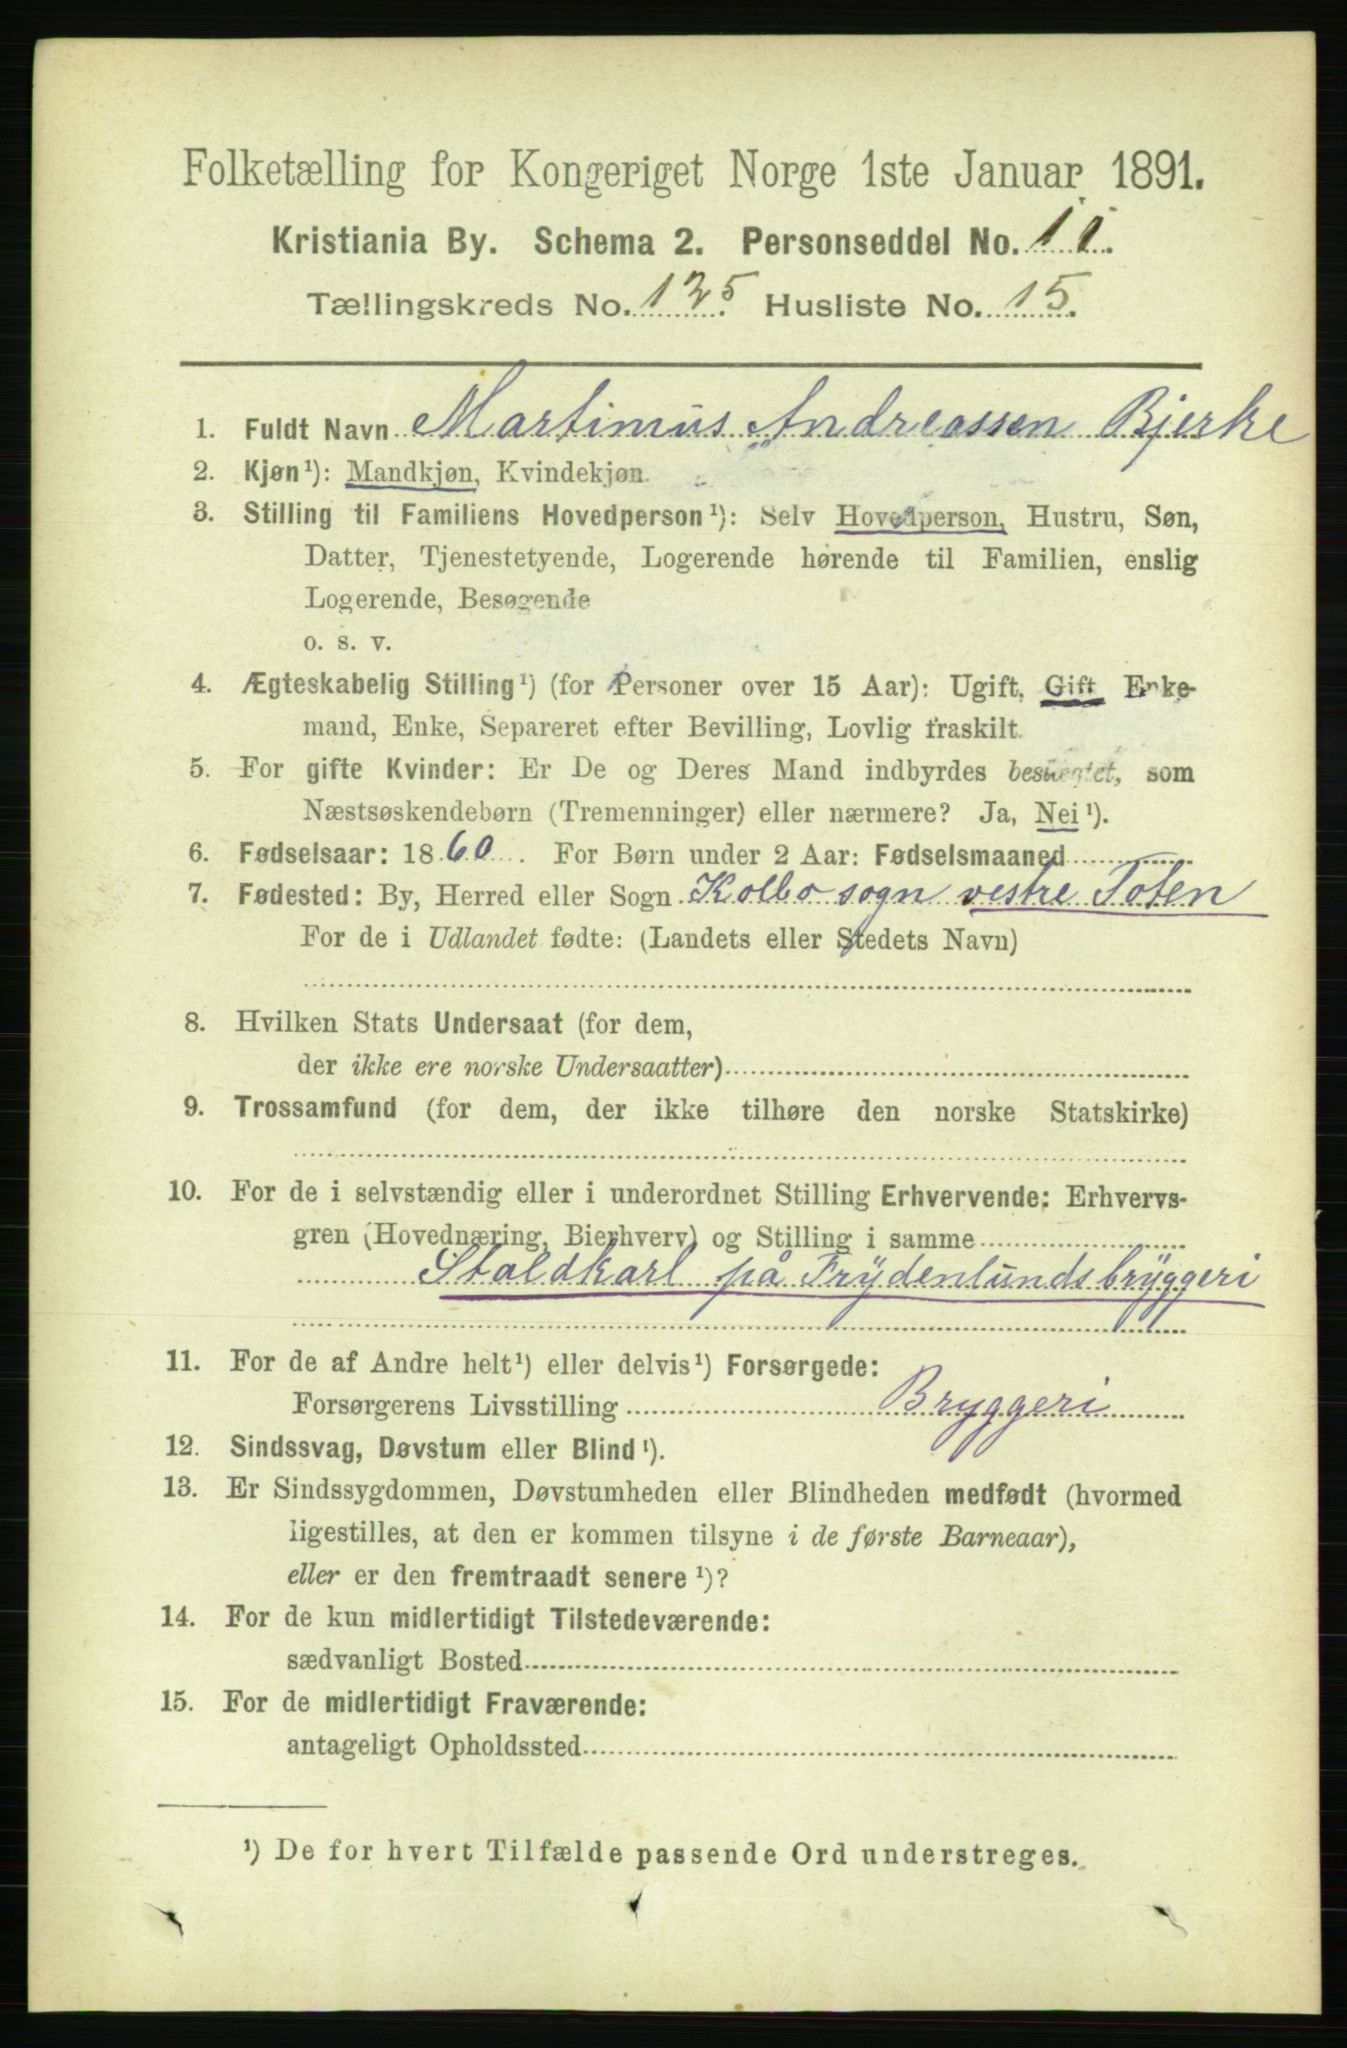 Folketælling for Kongeriget Norge 1ste Januar 1891.
Kristiania By. Schema 2. Personseddel No. 11.
Tællingskreds No. 125. Husliste No. 15.
1. Fuldt Navn Martinius Andreassen Bjerke
2. Kjøn¹): Mandkjøn, Kvindekjøn.
3. Stilling til Familiens Hovedperson¹): Selv Hovedperson, Hustru, Søn,
Datter, Tjenestetyende, Logerende hørende til Familien, enslig
Logerende, Besøgende
o. s. v.
4. Ægteskabelig Stilling¹) (for Personer over 15 Aar): Ugift, Gift Enke-
mand, Enke, Separeret efter Bevilling, Lovlig fraskilt.
5. For gifte Kvinder: Er De og Deres Mand indbyrdes beslægtet, som
Næstsøskendebørn (Tremenninger) eller nærmere? Ja, Nei¹).
6. Fødselsaar: 1860. For Børn under 2 Aar: Fødselsmaaned
7. Fødested: By, Herred eller Sogn Kolbo sogn vestre Toten
For de i Udlandet fødte: (Landets eller Stedets Navn)
8. Hvilken Stats Undersaat (for dem,
der ikke ere norske Undersaatter)
9. Trossamfund (for dem, der ikke tilhøre den norske Statskirke)
10. For de i selvstændig eller i underordnet Stilling Erhvervende: Erhvervs-
gren (Hovednæring, Bierhverv) og Stilling i samme
Staldkarl på Frydenlunds bryggeri
11. For de af Andre helt¹) eller delvis¹) Forsørgede:
Forsørgerens Livsstilling Bryggeri
12. Sindssvag, Døvstum eller Blind¹).
13. Er Sindssygdommen, Døvstumheden eller Blindheden medfødt (hvormed
ligestilles, at den er kommen tilsyne i de første Barneaar),
eller er den fremtraadt senere¹)?
14. For de kun midlertidigt Tilstedeværende:
sædvanligt Bosted
15. For de midlertidigt Fraværende:
antageligt Opholdssted
¹) De for hvert Tilfælde passende Ord understreges.